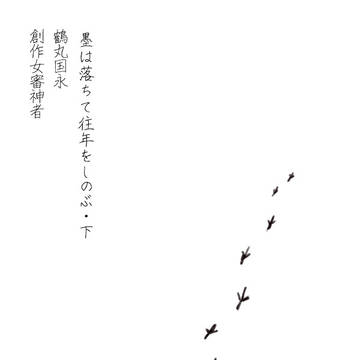 墨は落ちて往年をしのぶ・下
鶴丸国永
創作女審神者